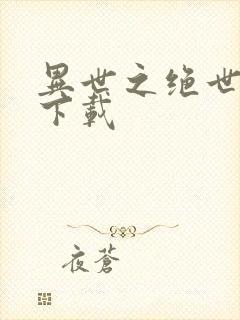 異世之绝世
下載
夜蒼